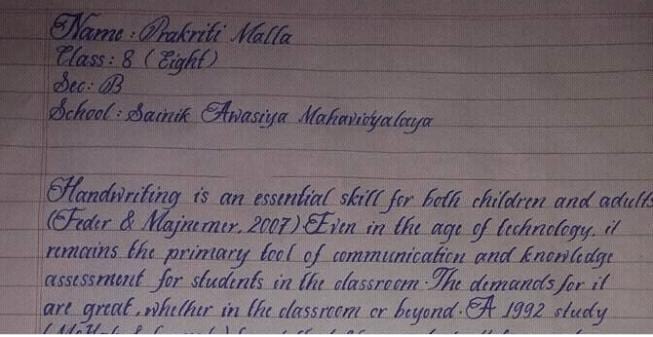 Name : Prakriti Malla
Class : 8 ( Eight )
Sec : B
School : Sainik Awasiya Mahavidyalaya
Handwriting is an essential skill for both children and adults
(Feder & Majnemer, 2007) Even in the age of technology, it
remains the primary tool of communication and knowledge
assessment for students in the classroom. The demands for it
are great, whether in the classroom or beyond. A 1992 study